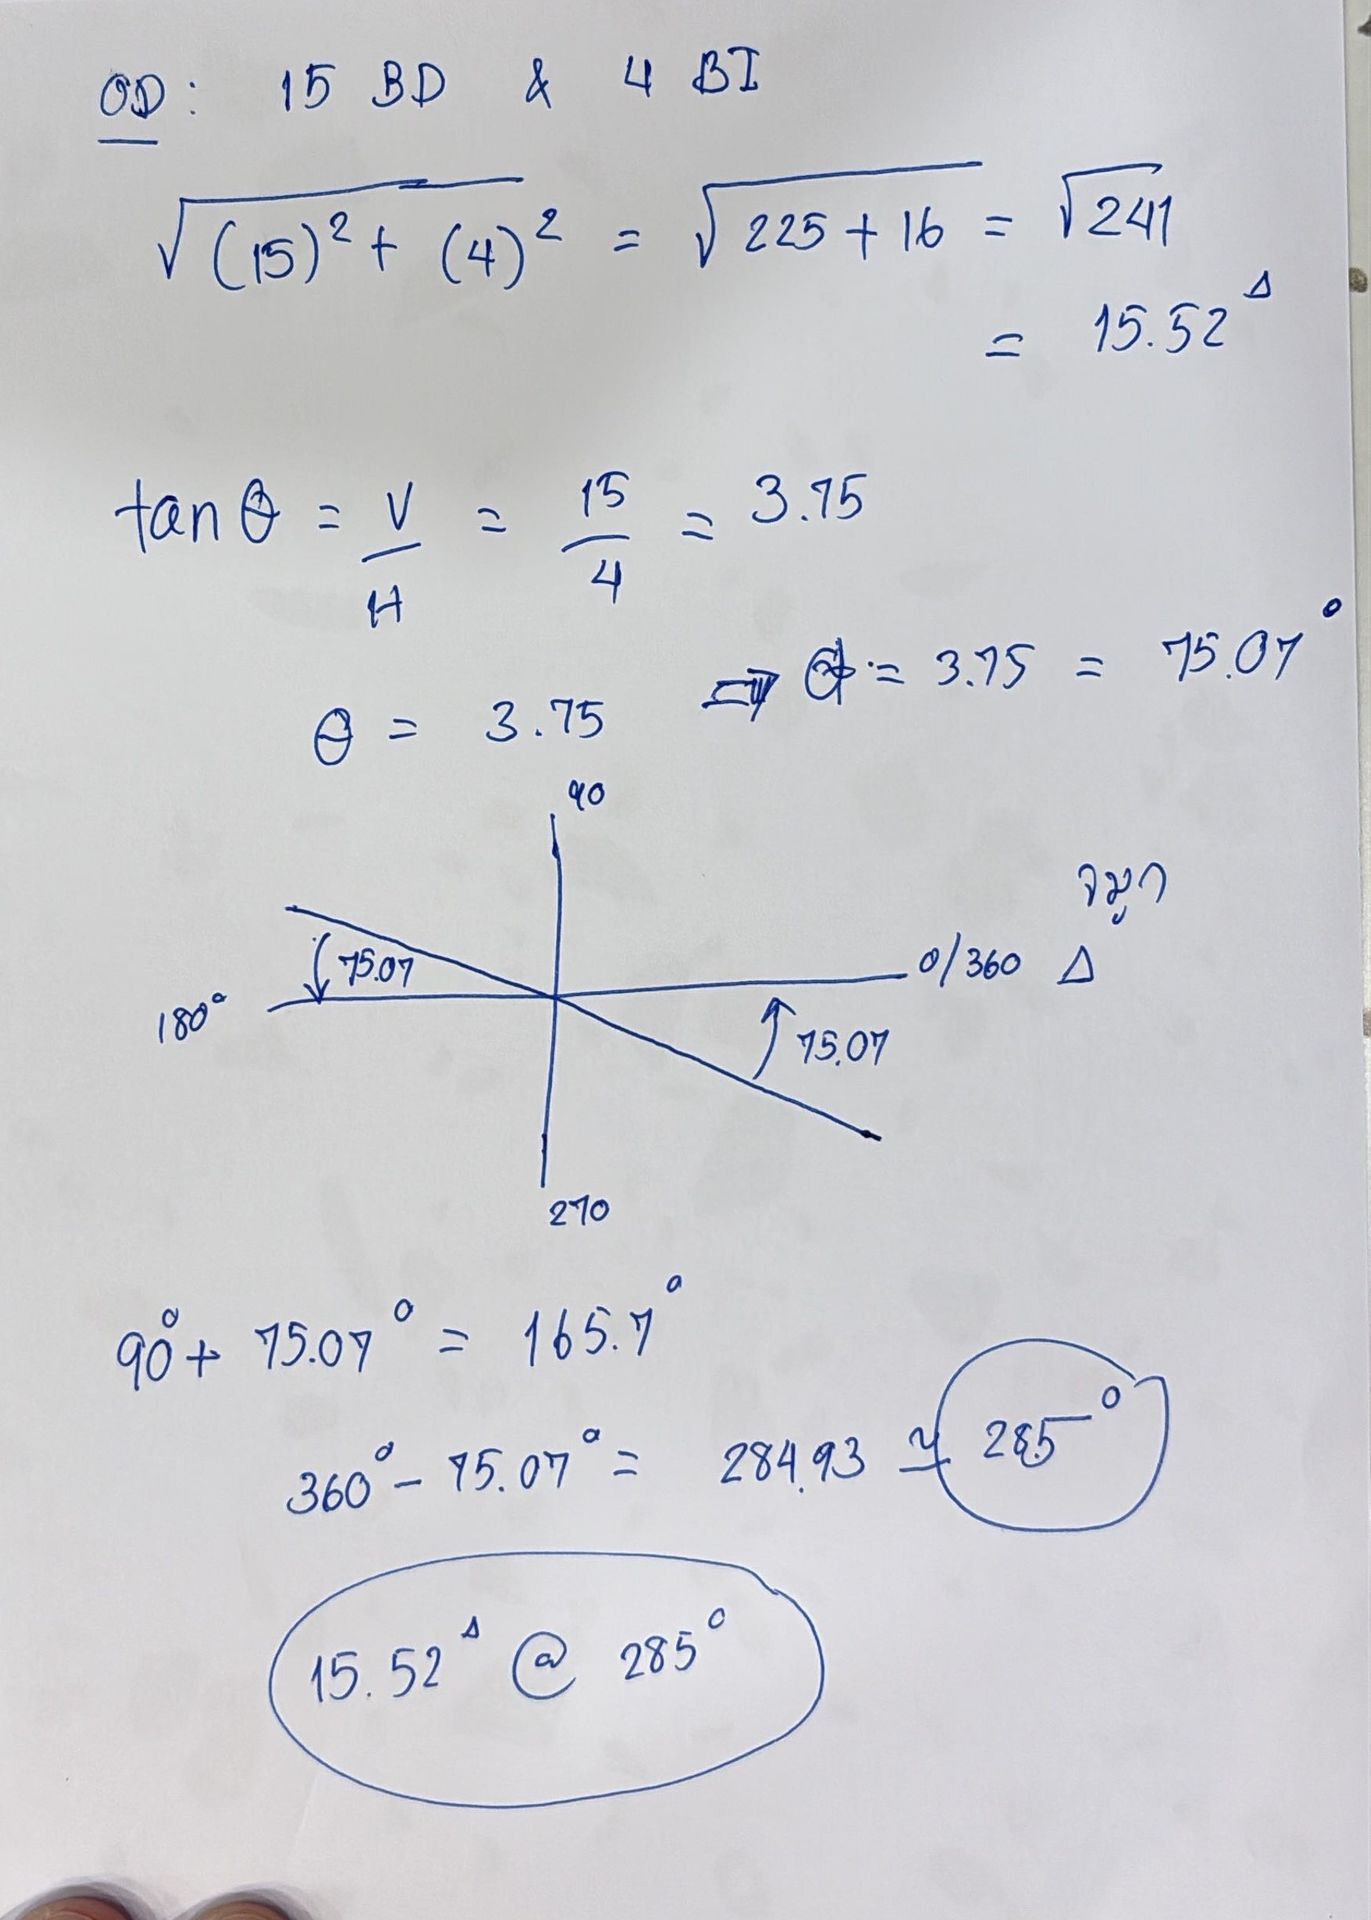 OD: 15 BD & 4 BI
√(15)² + (4)² = √225 + 16 = √241
= 15.52 Δ
tan θ = V/H = 15/4 = 3.75
θ = 3.75 ⇒ θ = 3.75 = 75.07°
90
จมูก
75.07
0/360 Δ
180°
75.07
270
90° + 75.07° = 165.7°
360° - 75.07° = 284.93 ≃ 285°
15.52 Δ @ 285°